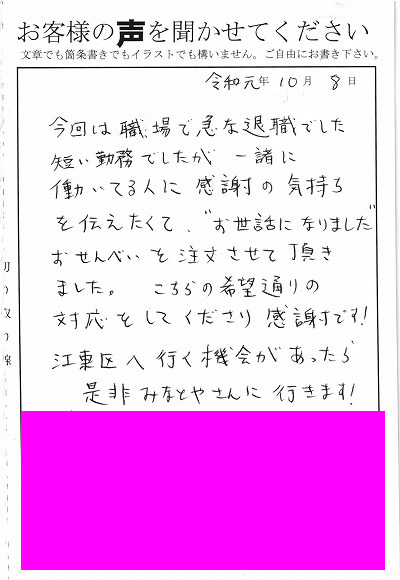 お客様の声を聞かせてください
文章でも箇条書きでもイラストでも構いません。ご自由にお書き下さい。
令和元年 10月 8日
今回は職場で急な退職でした
短い勤務でしたが 一諸に
働いてる人に 感謝の気持ち
を伝えたくて、"お世話になりました"
おせんべいを注文させて頂き
ました。 こちらの希望通りの
対応をしてくださり感謝です!
江東区へ行く機会があったら
是非みなとやさんに行きます!